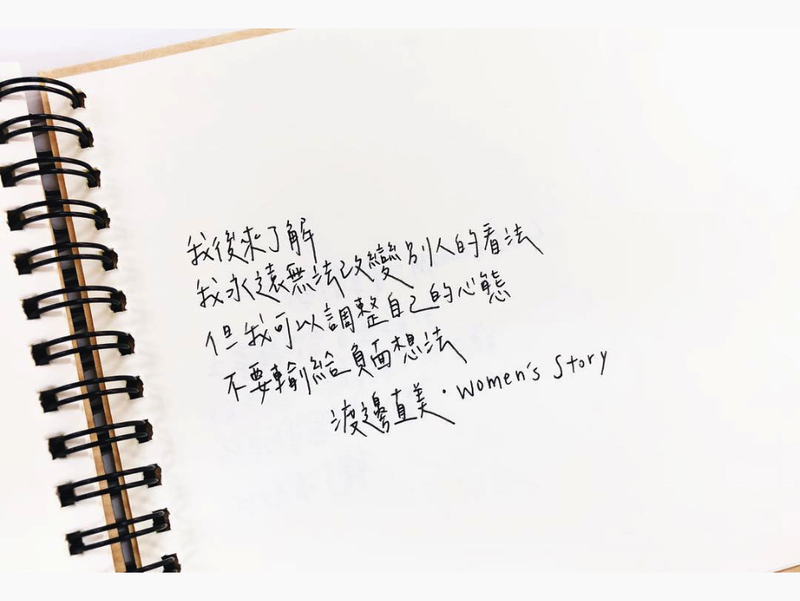 我後來了解
我永遠無法改變別人的看法
但我可以調整自己的心態
不要輸給負面想法
渡邊直美·Women's Story